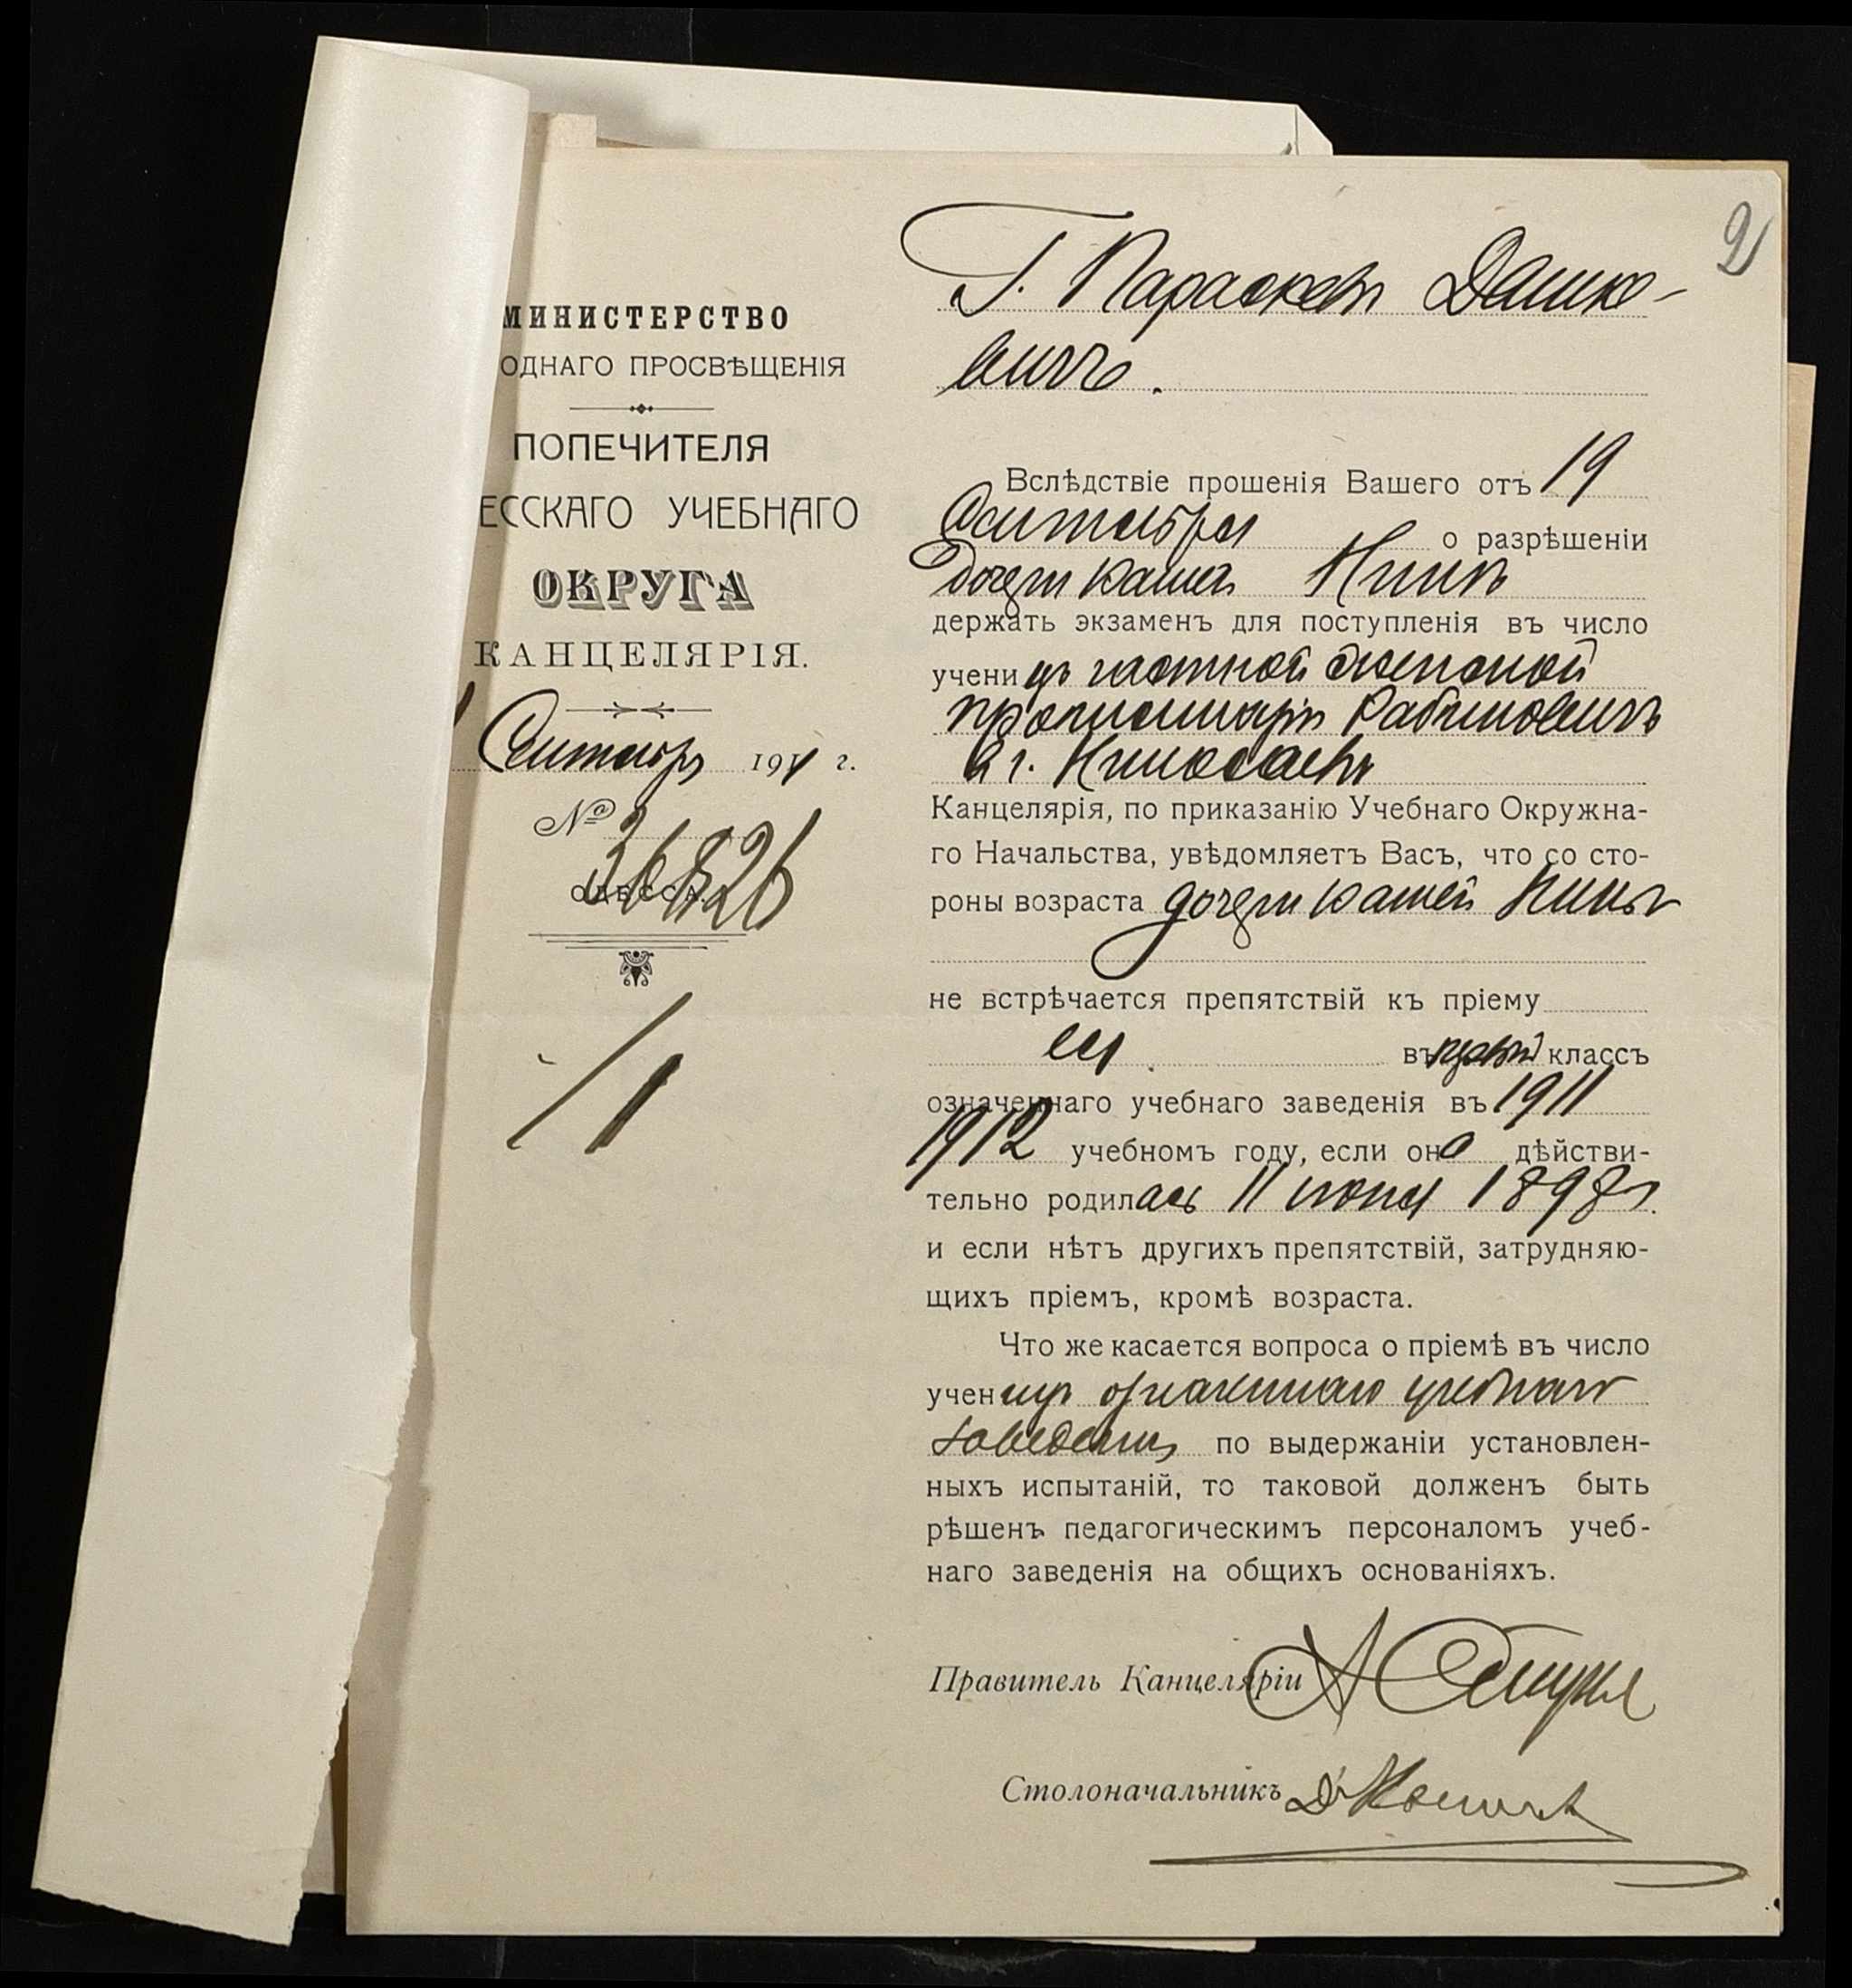 2
МИНИСТЕРСТВО
ОДНАГО ПРОСВѢЩЕНІЯ
ПОПЕЧИТЕЛЯ
ЕССКАГО УЧЕБНАГО
ОКРУГА
КАНЦЕЛЯРІЯ.
Сентября 1911 г.
№ 36826
ОДЕССА.
Г. Параскевѣ Дашко-
вичъ.
Вслѣдствіе прошенія Вашего отъ 19
Сентября о разрѣшеніи
дочери вашей Нинѣ
держать экзаменъ для поступленія въ число
ученицъ частной женской
прогимназіи Рабиновичъ
в г. Николаевѣ
Канцелярія, по приказанію Учебнаго Окружна-
го Начальства, увѣдомляетъ Васъ, что со сто-
роны возраста дочери вашей Нины
не встрѣчается препятствій къ пріему
ея въ классъ
означеннаго учебнаго заведенія въ 1911
1912 учебномъ году, если она дѣйстви-
тельно родилась 11 іюня 1898 г.
и если нѣтъ другихъ препятствій, затрудняю-
щихъ пріемъ, кромѣ возраста.
Что же касается вопроса о пріемѣ въ число
ученицъ означеннаго учебнаго
заведенія по выдержаніи установлен-
ныхъ испытаній, то таковой долженъ быть
рѣшенъ педагогическимъ персоналомъ учеб-
наго заведенія на общихъ основаніяхъ.
Правитель Канцеляріи
Столоначальникъ